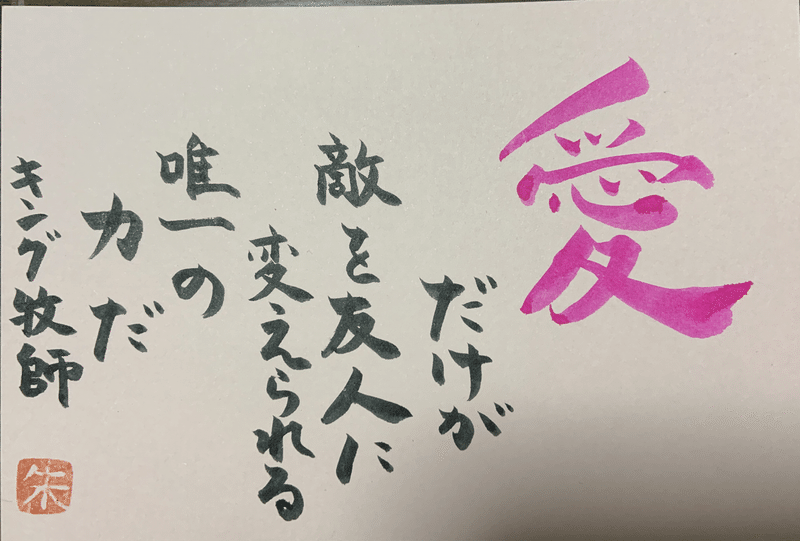 愛
だけが
敵を友人に
変えられる
唯一の
力だ
キング牧師
朱